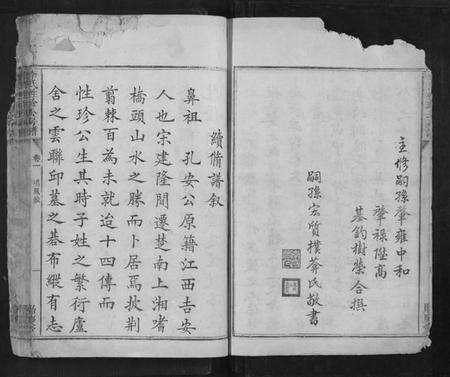 主修嗣孫肇雍中和
肇祿陞高
基鈞樹榮合撰
嗣孫宏質樸菴氏敬書
續脩譜叙
鼻祖　孔安公原籍江西吉安
人也宋建隆間遷楚南上湘嗜
橋頭山水之勝而卜居焉披荆
翦棘百為未就迨十四傳而
性珍公生其時子姓之繁衍廬
舍之雲聯邱墓之碁布縱有志
卷一